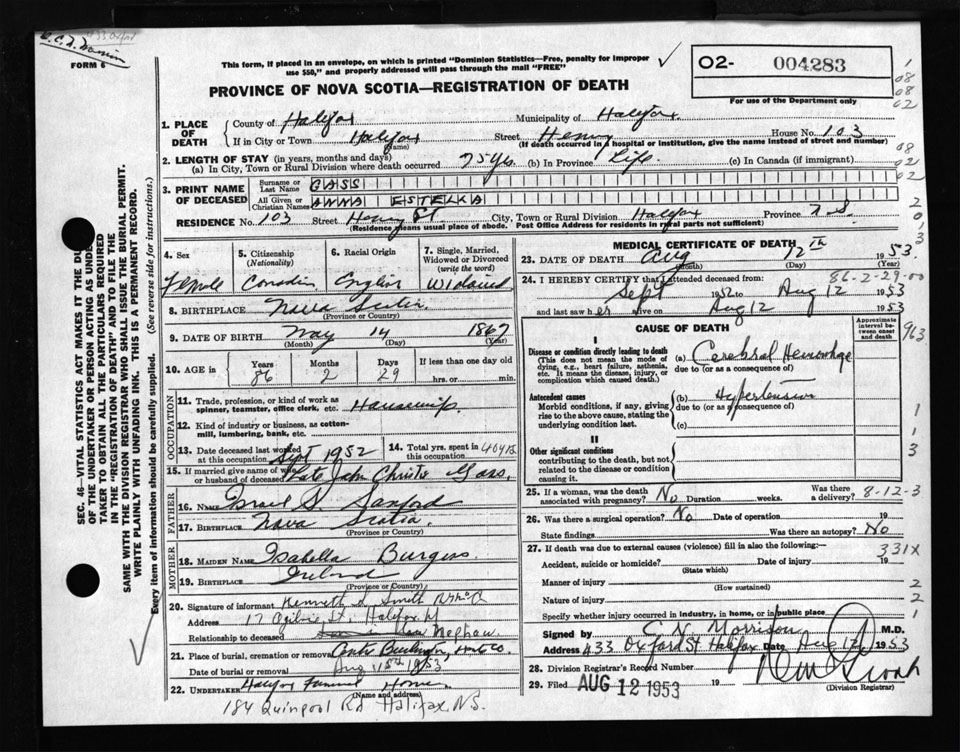 433 Oxford
FORM 6
This form, if placed in an envelope, on which is printed "Dominion Statistics—Free, penalty for improper
use $50," and properly addressed will pass through the mail "FREE"
PROVINCE OF NOVA SCOTIA—REGISTRATION OF DEATH
02- 004283
For use of the Department only
1. PLACE OF DEATH
County of Halifax Municipality of Halifax
If in City or Town Halifax (Name) Street Henry House No. 103
(If death occurred in a hospital or institution, give the name instead of street and number)
2. LENGTH OF STAY (in years, months and days)
(a) In City, Town or Rural Division where death occurred 75 yrs. (b) In Province Life. (c) In Canada (if immigrant)
3. PRINT NAME OF DECEASED
Surname or Last Name GASS
All Given or Christian Names ANNA ESTELLA
RESIDENCE No. 103 Street Henry St City, Town or Rural Division Halifax Province N.S.
(Residence means usual place of abode. Post Office Address for residents in rural parts not sufficient)
4. Sex Female
5. Citizenship (Nationality) Canadian
6. Racial Origin English
7. Single, Married, Widowed or Divorced (write the word) Widowed
8. BIRTHPLACE Nova Scotia
(Province or Country)
9. DATE OF BIRTH May 14 1867
(Month) (Day) (Year)
10. AGE in Years 86 Months 2 Days 29 If less than one day old hrs. or min.
OCCUPATION
11. Trade, profession, or kind of work as
spinner, teamster, office clerk, etc. Housewife
12. Kind of industry or business, as cotton-
mill, lumbering, bank, etc.
13. Date deceased last worked at this occupation Sept 1952
14. Total yrs. spent in this occupation 40 yrs.
15. If married give name of wife
or husband of deceased Late John Christie Gass.
FATHER
16. NAME Israel S. Sanford
17. BIRTHPLACE Nova Scotia.
(Province or Country)
MOTHER
18. MAIDEN NAME Isabella Burgess.
19. BIRTHPLACE Ireland
(Province or Country)
20. Signature of informant Kenneth Smith
Address 17 Ogilvie St. Halifax
Relationship to deceased Nephew.
21. Place of burial, cremation or removal
Date of burial or removal Aug 1953
22. UNDERTAKER Halifax Funeral Home.
(Name and address)
184 Quinpool Rd Halifax, N.S.
MEDICAL CERTIFICATE OF DEATH
23. DATE OF DEATH Aug 12th 1953
(Month) (Day) (Year)
86-2-29-00
24. I HEREBY CERTIFY that I attended deceased from:
Sept 1952 to Aug 12 1953
and last saw her alive on Aug 12 1953
CAUSE OF DEATH
Approximate interval between onset and death
I
Disease or condition directly leading to death
(This does not mean the mode of
dying, e.g., heart failure, asthenia,
etc. It means the disease, injury, or
complication which caused death.)
(a) Cerebral Hemorrhage
due to (or as a consequence of)
Antecedent causes
Morbid conditions, if any, giving
rise to the above cause, stating the
underlying condition last.
(b) Hypertension
due to (or as a consequence of)
(c)
II
Other significant conditions
contributing to the death, but not
related to the disease or condition
causing it.
25. If a woman, was the death
associated with pregnancy? No Duration weeks. Was there a delivery? 8-12-3
26. Was there a surgical operation? No Date of operation 19
State findings Was there an autopsy? No
27. If death was due to external causes (violence) fill in also the following:— 331X
Accident, suicide or homicide? Date of injury 19
(State which)
Manner of injury
(How sustained)
Nature of injury
Specify whether injury occurred in industry, in home, or in public place
Signed by C. N. Morrison M.D.
Address 433 Oxford St Halifax Date Aug 12 1953
28. Division Registrar's Record Number
29. Filed AUG 12 1953
(Division Registrar)
SEC. 46—VITAL STATISTICS ACT MAKES IT THE DUTY
OF THE UNDERTAKER OR PERSON ACTING AS UNDER-
TAKER TO OBTAIN ALL THE PARTICULARS REQUIRED
IN THE "REGISTRATION OF DEATH" AND TO FILE THE
SAME WITH THE DIVISION REGISTRAR WHO SHALL ISSUE THE BURIAL PERMIT.
WRITE PLAINLY WITH UNFADING INK. THIS IS A PERMANENT RECORD.
Every item of information should be carefully supplied. (See reverse side for instructions.)